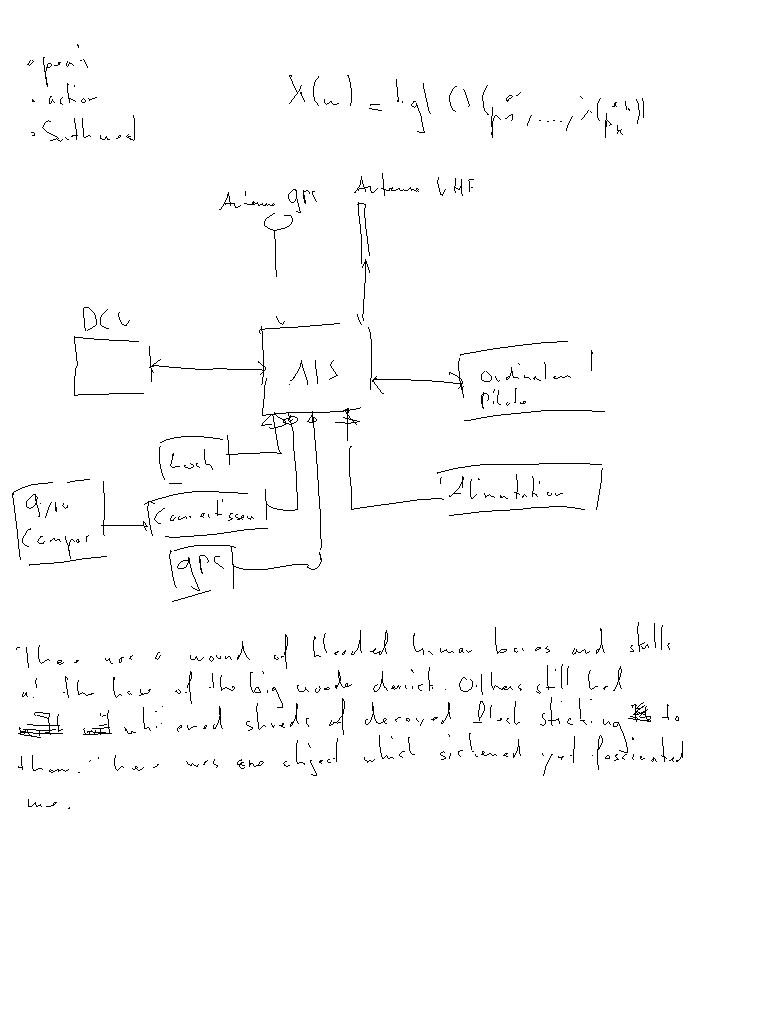 • action
X(n) =
Antenne GPS
Antenne VHF
DCU
AIS
Ordinateur
pilote
Loch
Gyro
Compas
Convertisseur
Alimentation
GPS
There was a mound of bleeded human bones and skulls
at the base of the big wooden derrick. Others still had
whitened shreds of decayed flesh sticking to
them. There was one object which sickened yet fascinated
me.